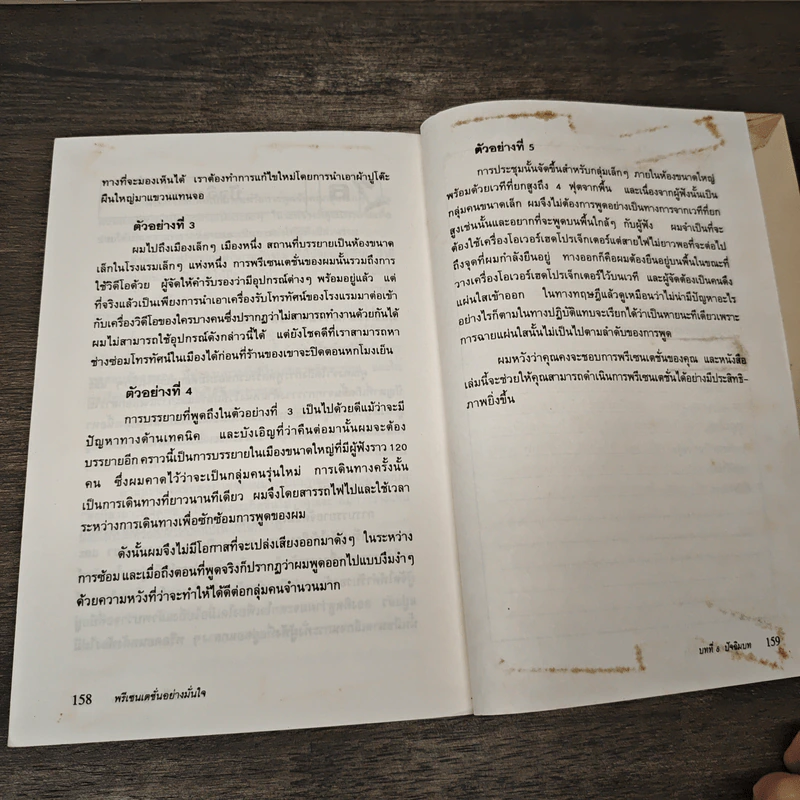 ทางที่จะมองเห็นได้ เราต้องทำการแก้ไขใหม่โดยการนำเอาผ้าปูโต๊ะ
ผืนใหญ่มาแขวนแทนจอ
ตัวอย่างที่ 3
ผมไปถึงเมืองเล็กๆ เมืองหนึ่ง สถานที่บรรยายเป็นห้องขนาด
เล็กในโรงแรมเล็กๆ แห่งหนึ่ง การพรีเซนเตชั่นของผมนั้นรวมถึงการ
ใช้วิดีโอด้วย ผู้จัดให้คำรับรองว่ามีอุปกรณ์ต่างๆ พร้อมอยู่แล้ว แต่
ที่จริงแล้วเป็นเพียงการนำเอาเครื่องรับโทรทัศน์ของโรงแรมมาต่อเข้า
กับเครื่องวิดีโอของใครบางคนซึ่งปรากฏว่าไม่สามารถทำงานด้วยกันได้
ผมไม่สามารถใช้อุปกรณ์ดังกล่าวนี้ได้ แต่ยังโชคดีที่เราสามารถหา
ช่างซ่อมโทรทัศน์ในเมืองได้ก่อนที่ร้านของเขาจะปิดตอนหกโมงเย็น
ตัวอย่างที่ 4
การบรรยายที่พูดถึงในตัวอย่างที่ 3 เป็นไปด้วยดีแม้ว่าจะมี
ปัญหาทางด้านเทคนิค และบังเอิญที่ว่าคืนต่อมานั้นผมจะต้อง
บรรยายอีก คราวนี้เป็นการบรรยายในเมืองขนาดใหญ่ที่มีผู้ฟังราว 120
คน ซึ่งผมคาดไว้ว่าจะเป็นกลุ่มคนรุ่นใหม่ การเดินทางครั้งนั้น
เป็นการเดินทางที่ยาวนานทีเดียว ผมจึงโดยสารรถไฟไปและใช้เวลา
ระหว่างการเดินทางเพื่อซักซ้อมการพูดของผม
ดังนั้นผมจึงไม่มีโอกาสที่จะเปล่งเสียงออกมาดังๆ ในระหว่าง
การซ้อม และเมื่อถึงตอนที่พูดจริงก็ปรากฏว่าผมพูดออกไปแบบงึมงำๆ
ด้วยความหวังที่ว่าจะทำให้ได้ดีต่อกลุ่มคนจำนวนมาก
158 พรีเซนเตชั่นอย่างมั่นใจ
ตัวอย่างที่ 5
การประชุมนั้นจัดขึ้นสำหรับกลุ่มเล็กๆ ภายในห้องขนาดใหญ่
พร้อมด้วยเวทีที่ยกสูงถึง 4 ฟุตจากพื้น และเนื่องจากผู้ฟังนั้นเป็น
กลุ่มคนขนาดเล็ก ผมจึงไม่ต้องการพูดอย่างเป็นทางการจากเวทีที่ยก
สูงเช่นนั้นและอยากที่จะพูดบนพื้นใกล้ๆ กับผู้ฟัง ผมจำเป็นที่จะ
ต้องใช้เครื่องโอเวอร์เฮดโปรเจ็กเตอร์แต่สายไฟไม่ยาวพอที่จะต่อไป
ถึงจุดที่ผมกำลังยืนอยู่ ทางออกก็คือผมต้องยืนอยู่บนพื้นในขณะที่
วางเครื่องโอเวอร์เฮดโปรเจ็กเตอร์ไว้บนเวที และผู้จัดต้องเป็นคนดึง
แผ่นใสเข้าออก ในทางทฤษฎีแล้วดูเหมือนว่าไม่น่ามีปัญหาอะไร
อย่างไรก็ตามในทางปฏิบัติแทบจะเรียกได้ว่าเป็นหายนะทีเดียวเพราะ
การฉายแผ่นใสนั้นไม่เป็นไปตามลำดับของการพูด
ผมหวังว่าคุณคงจะชอบการพรีเซนเตชั่นของคุณ และหนังสือ
เล่มนี้จะช่วยให้คุณสามารถดำเนินการพรีเซนเตชั่นได้อย่างมีประสิทธิ-
ภาพยิ่งขึ้น
บทที่ 8 ปัจฉิมบท 159